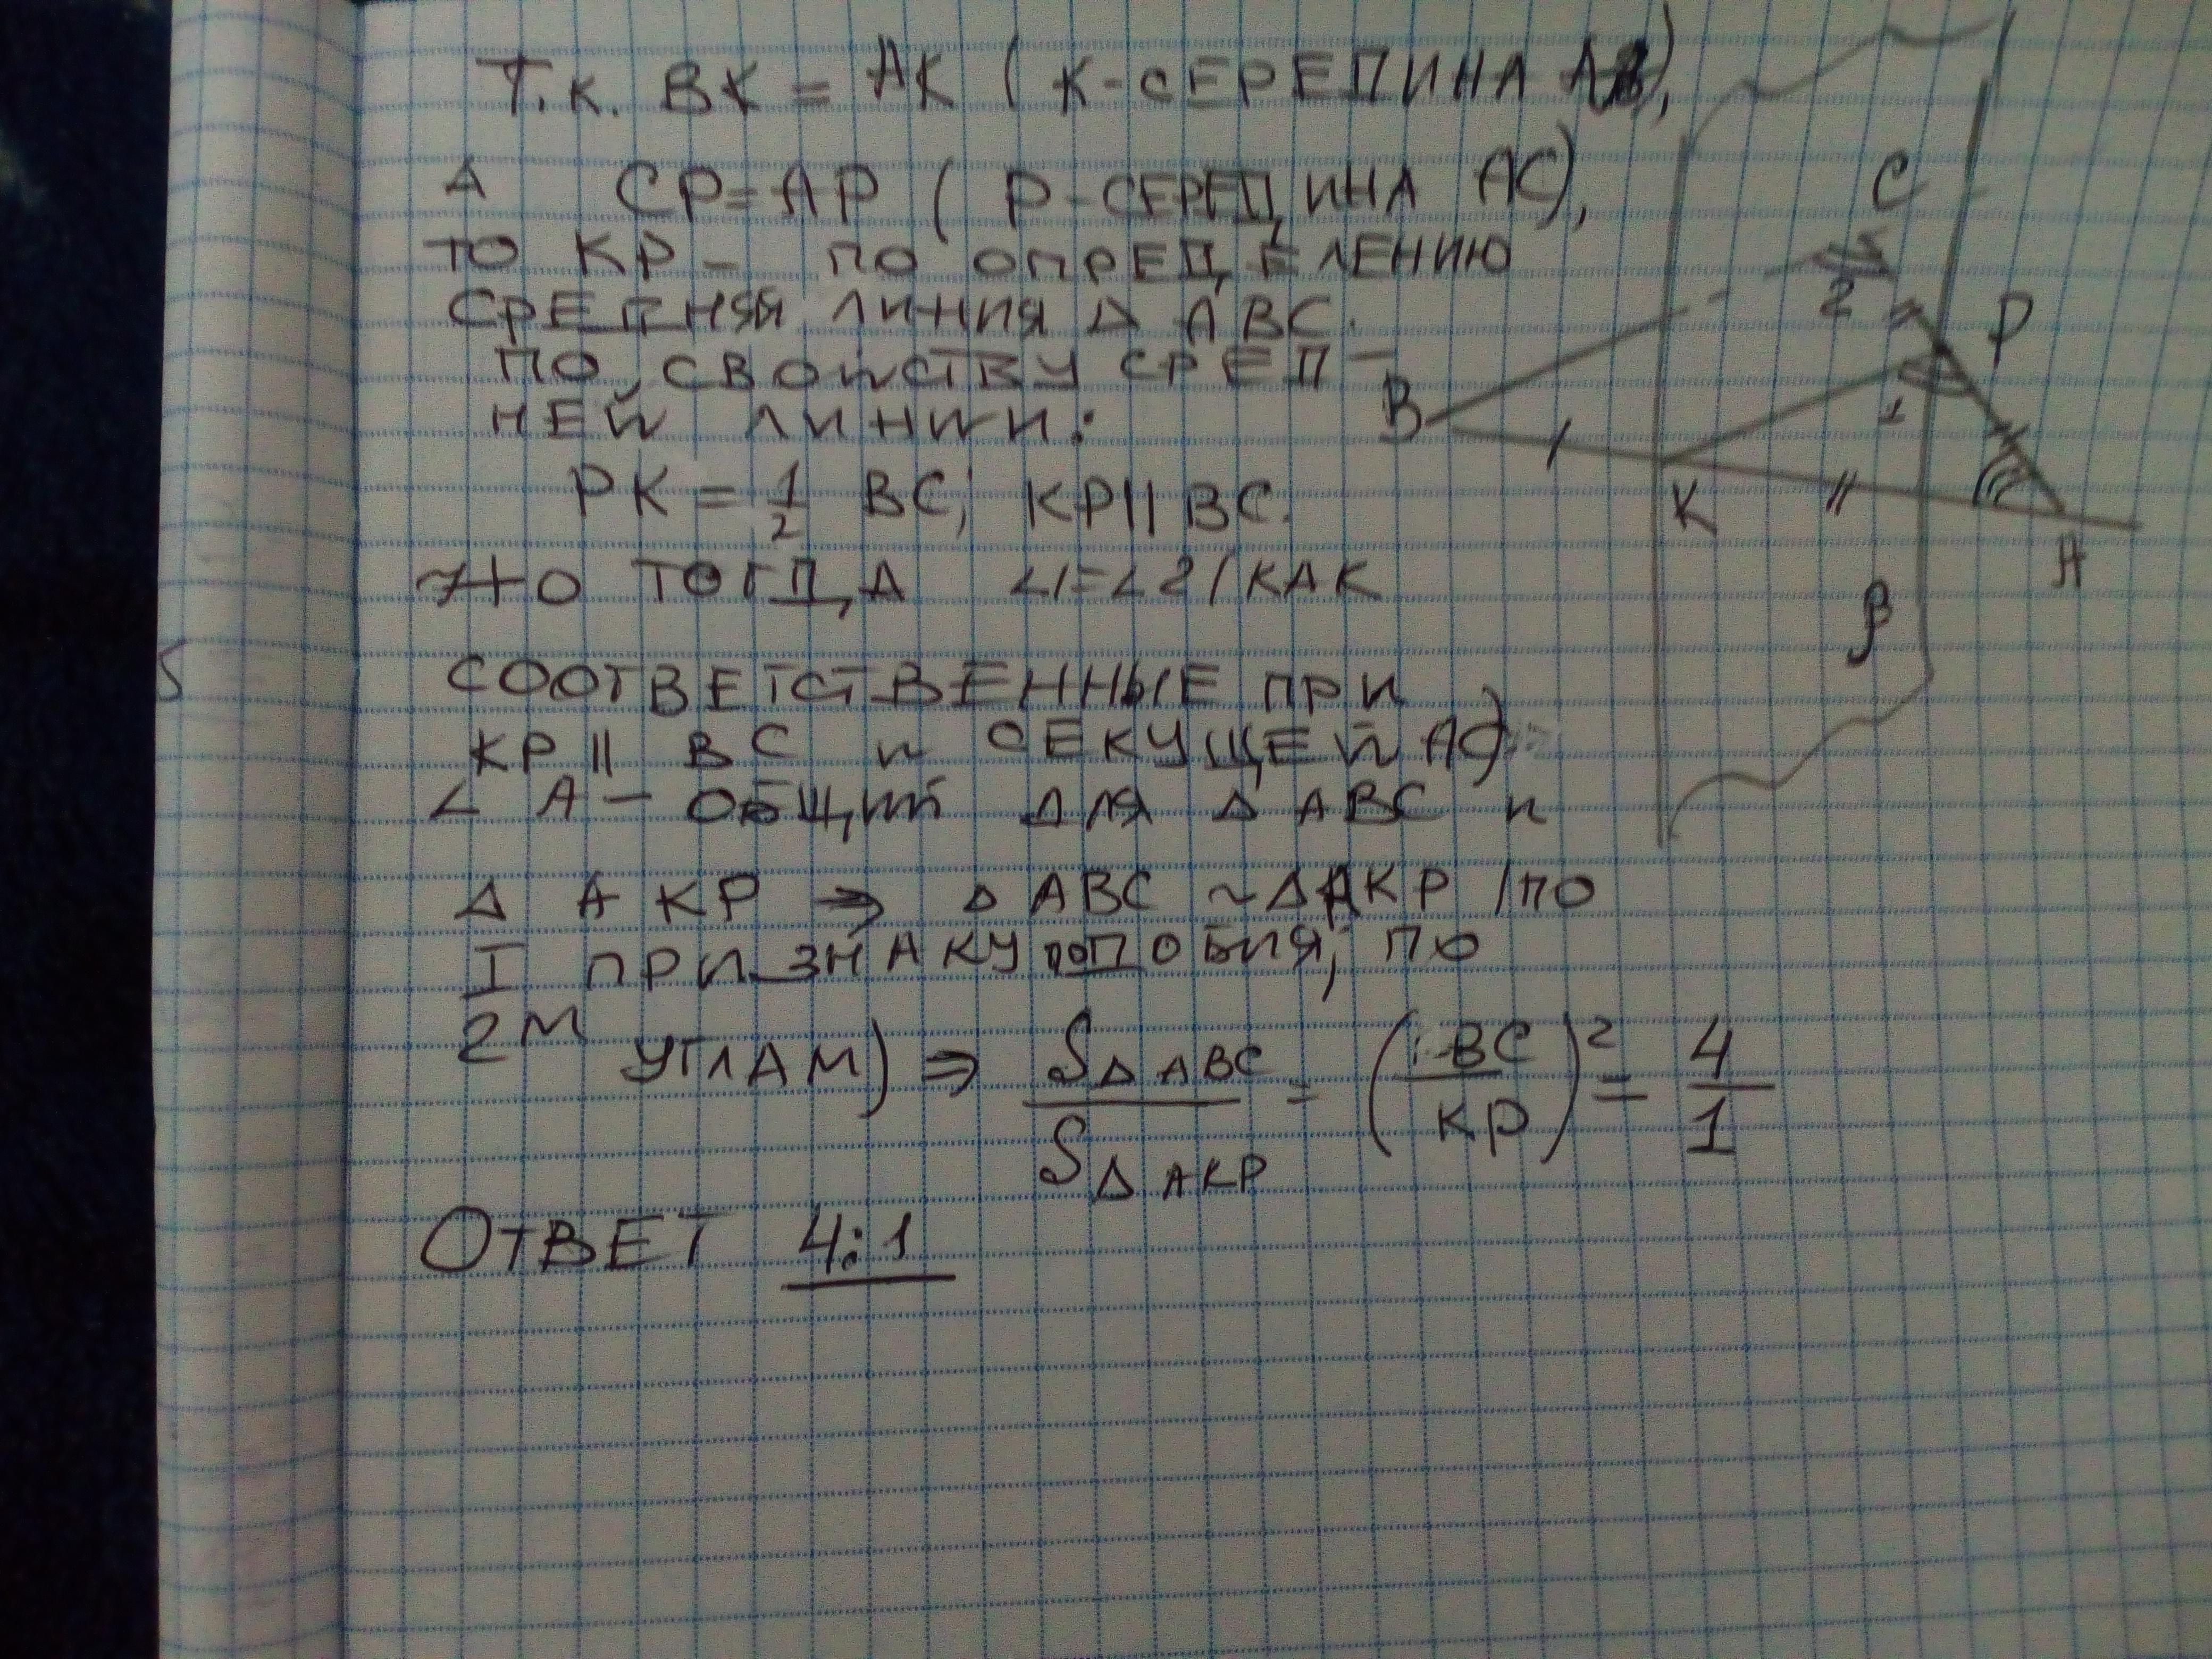 Т.к. ВК = АК ( К-СЕРЕДИНА АВ),
А СР=АР ( Р-СЕРЕДИНА АС),
ТО КР - ПО ОПРЕДЕЛЕНИЮ
СРЕДНЯЯ ЛИНИЯ Δ АВС.
ПО СВОЙСТВУ СРЕД-
НЕЙ ЛИНИИ:
РК = 1/2 ВС; КР || ВС.
НО ТОГДА ∠1=∠2 (КАК
СООТВЕТСТВЕННЫЕ ПРИ
КР || ВС И СЕКУЩЕЙ АС)
∠ А - ОБЩИЙ ДЛЯ Δ АВС И
Δ АКР ⇒ Δ АВС ~ Δ АКР (ПО
I ПРИЗНАКУ ПОДОБИЯ, ПО
2М УГЛАМ) ⇒ SΔ АВС / SΔ АКР = (ВС / КР)² = 4/1
ОТВЕТ 4:1
С
2
Р
В
1
К
А
β